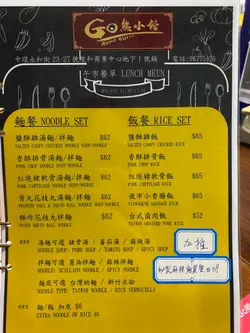 GO熊小館
中環永和街23-27號俊和商業中心地下1號鋪
午市餐單 LUNCH MEUN
麵餐 NOODLE SET
飯餐 RICE SET
鹽酥雞湯麵/拌麵 $62
SALTED CRISPY CHICKEN NOODLE SOUP/NOODLE
香酥排骨湯麵/拌麵 $62
PORK CHOP NOODLE SOUP/NOODLE
紅燒豬軟骨湯麵/拌麵 $62
PORK CARTILAGE NOODLE SOUP/NOODLE
貢丸花枝丸湯麵/拌麵 $62
酥炸花枝丸拌麵 $62
FRIED SQUID BALL NOODLE
鹽酥雞飯 $65
SALTED CRISPY CHICKEN RICE
香酥排骨飯 $65
PORK CHOP RICE
紅燒豬軟骨飯 $65
PORK CARTILAGE RICE
夜市小香腸飯 $65
台式滷肉飯 $52
TAIWAN BRAISED PORK RICE
湯麵可選 豬骨湯 / 蕃茄湯 / 麻辣湯
NOODLE SOUP: PORK SOUP / TOMATO SOUP / SPICY SOUP
拌麵可選 蔥油拌麵 / 麻辣拌麵
NOODLE: SCALLION NOODLE / SPICY NOODLE
麵底可選 台灣拉麵 / 新竹米粉
NOODLE TYPE: TAIWAN NOODLE / RICE VERMICELLI
麵/飯 加底 $6
EXTRA NOODLE OR RICE $6
加推